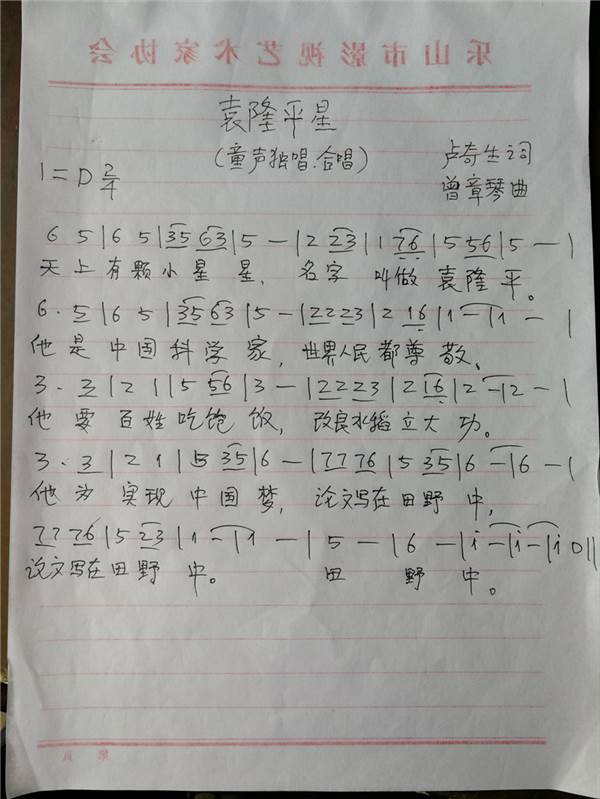 乐山市影视艺术家协会
袁隆平星
(童声独唱.合唱)
卢奇生词
1=D 2/4
曾章琴曲
6 5|6 5|35 63|5 —|2 23|1 76|5 56|5 —|
天上有颗小星星，名字叫做袁隆平。
6. 5|6 5|35 63|5 —|2223|2 16|1 —|1 —|
他是中国科学家，世界人民都尊敬、
3. 3|2 1|5 56|3 —|2223|2 16|2 —|2 —|
他要百姓吃饱饭，改良水稻立大功。
3. 3|2 1|5 35|6 —|7776|5 35|6 —|6 —|
他为实现中国梦，论文写在田野中，
7776|5 23|1 —|1 —|5 —|6 —|i —|i —|i 0||
论文写在田野中。田野中。
第 页